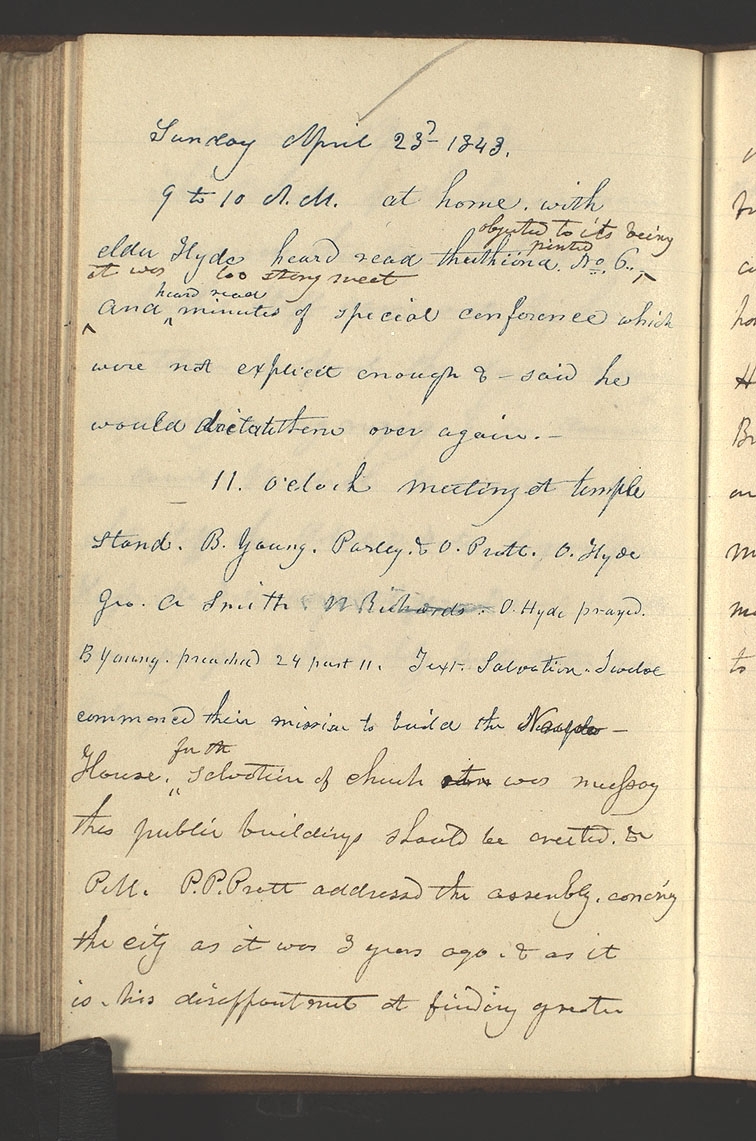 Sunday April 23d 1843.
9 to 10 A.M. at home. with
objected to its being
elder Hyde heard read No. 6.
printed
it was too strong meet
heard read
and minutes of special conference which
were not explicit enough & - said he
would dictate them over again.—
11. o'clock meeting at temple
stand. B. Young. Parley. & O. Pratt. O. Hyde
Geo. A Smith W Richards. O. Hyde prayed.
B Young. preached 24 past 11. Text- Salvation. Twelve
commenced their mission to build the
for th
House. Salvation of church was necessay
thes public buildings should be erected. &
P.M. P.P. Pratt addressed the assembly. concring
the city as it was 3 years ago. & as it
is. his disappointment at finding greater